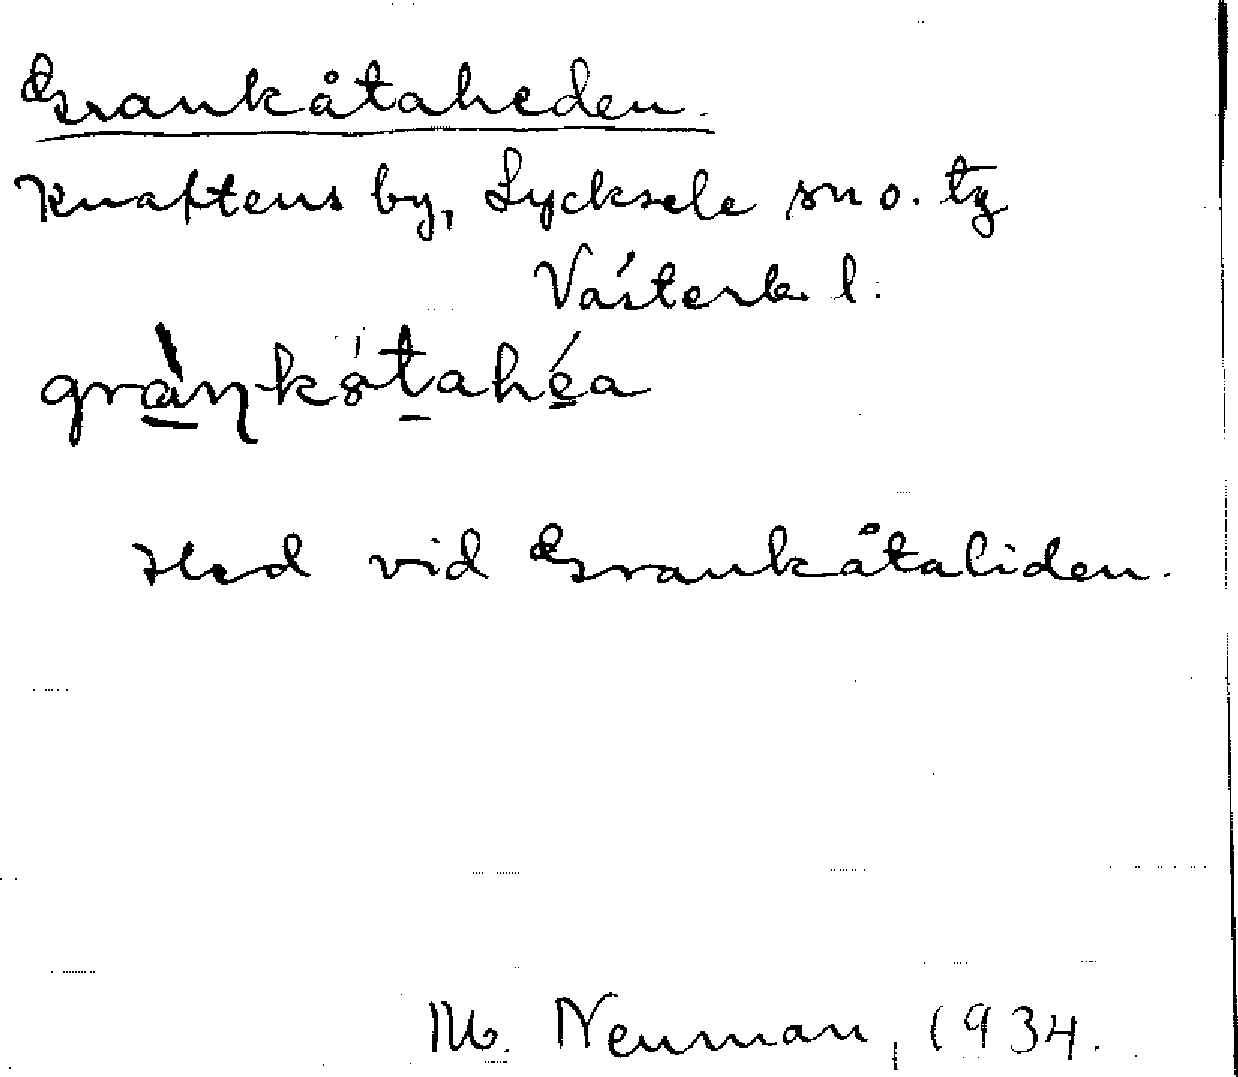 Grankåtaheden.
Knaftens by, Lycksele sn o. tg
Västerb. l.
Hed vid Grankåtaliden.
M. Neuman, 1934.